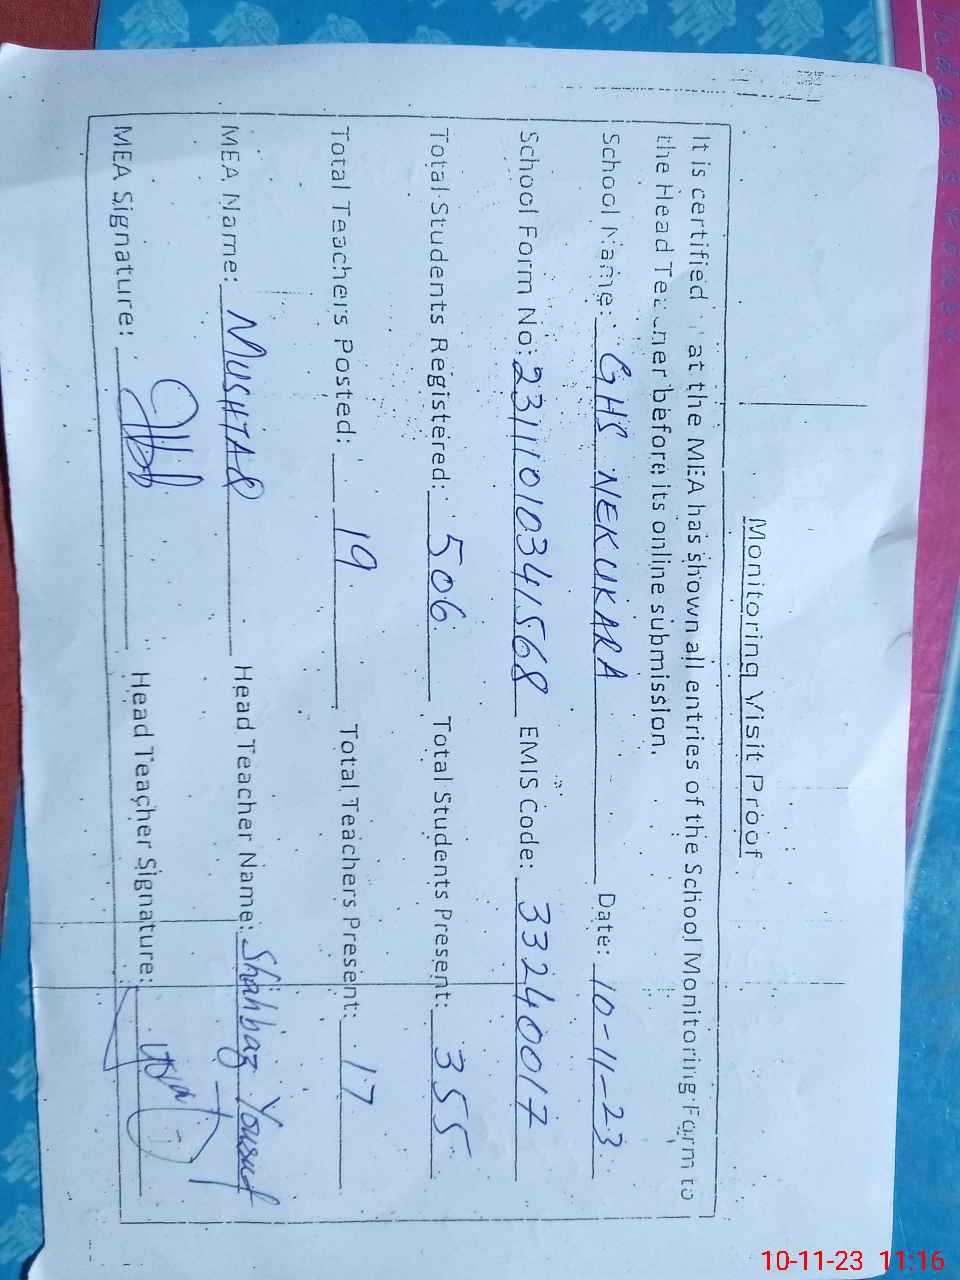 Monitoring Visit Proof
It is certified at the MEA has shown all entries of the School Monitoring Form to
the Head Teacher before its online submission.
School Name: GHS NEKUKARA Date: 10-11-23
School Form No: 23111010341568 EMIS Code: 33240017
Total Students Registered: 506 Total Students Present: 355
Total Teachers Posted: 19 Total Teachers Present: 17
MEA Name: MUSHTAQ Head Teacher Name: Shahbaz Yousuf
MEA Signature: Head Teacher Signature:
10-11-23 11:16